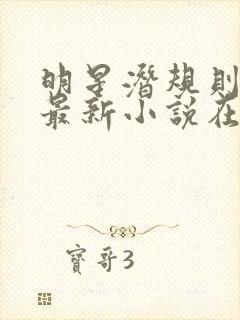 明星潛規則
最新小說在
寶哥3